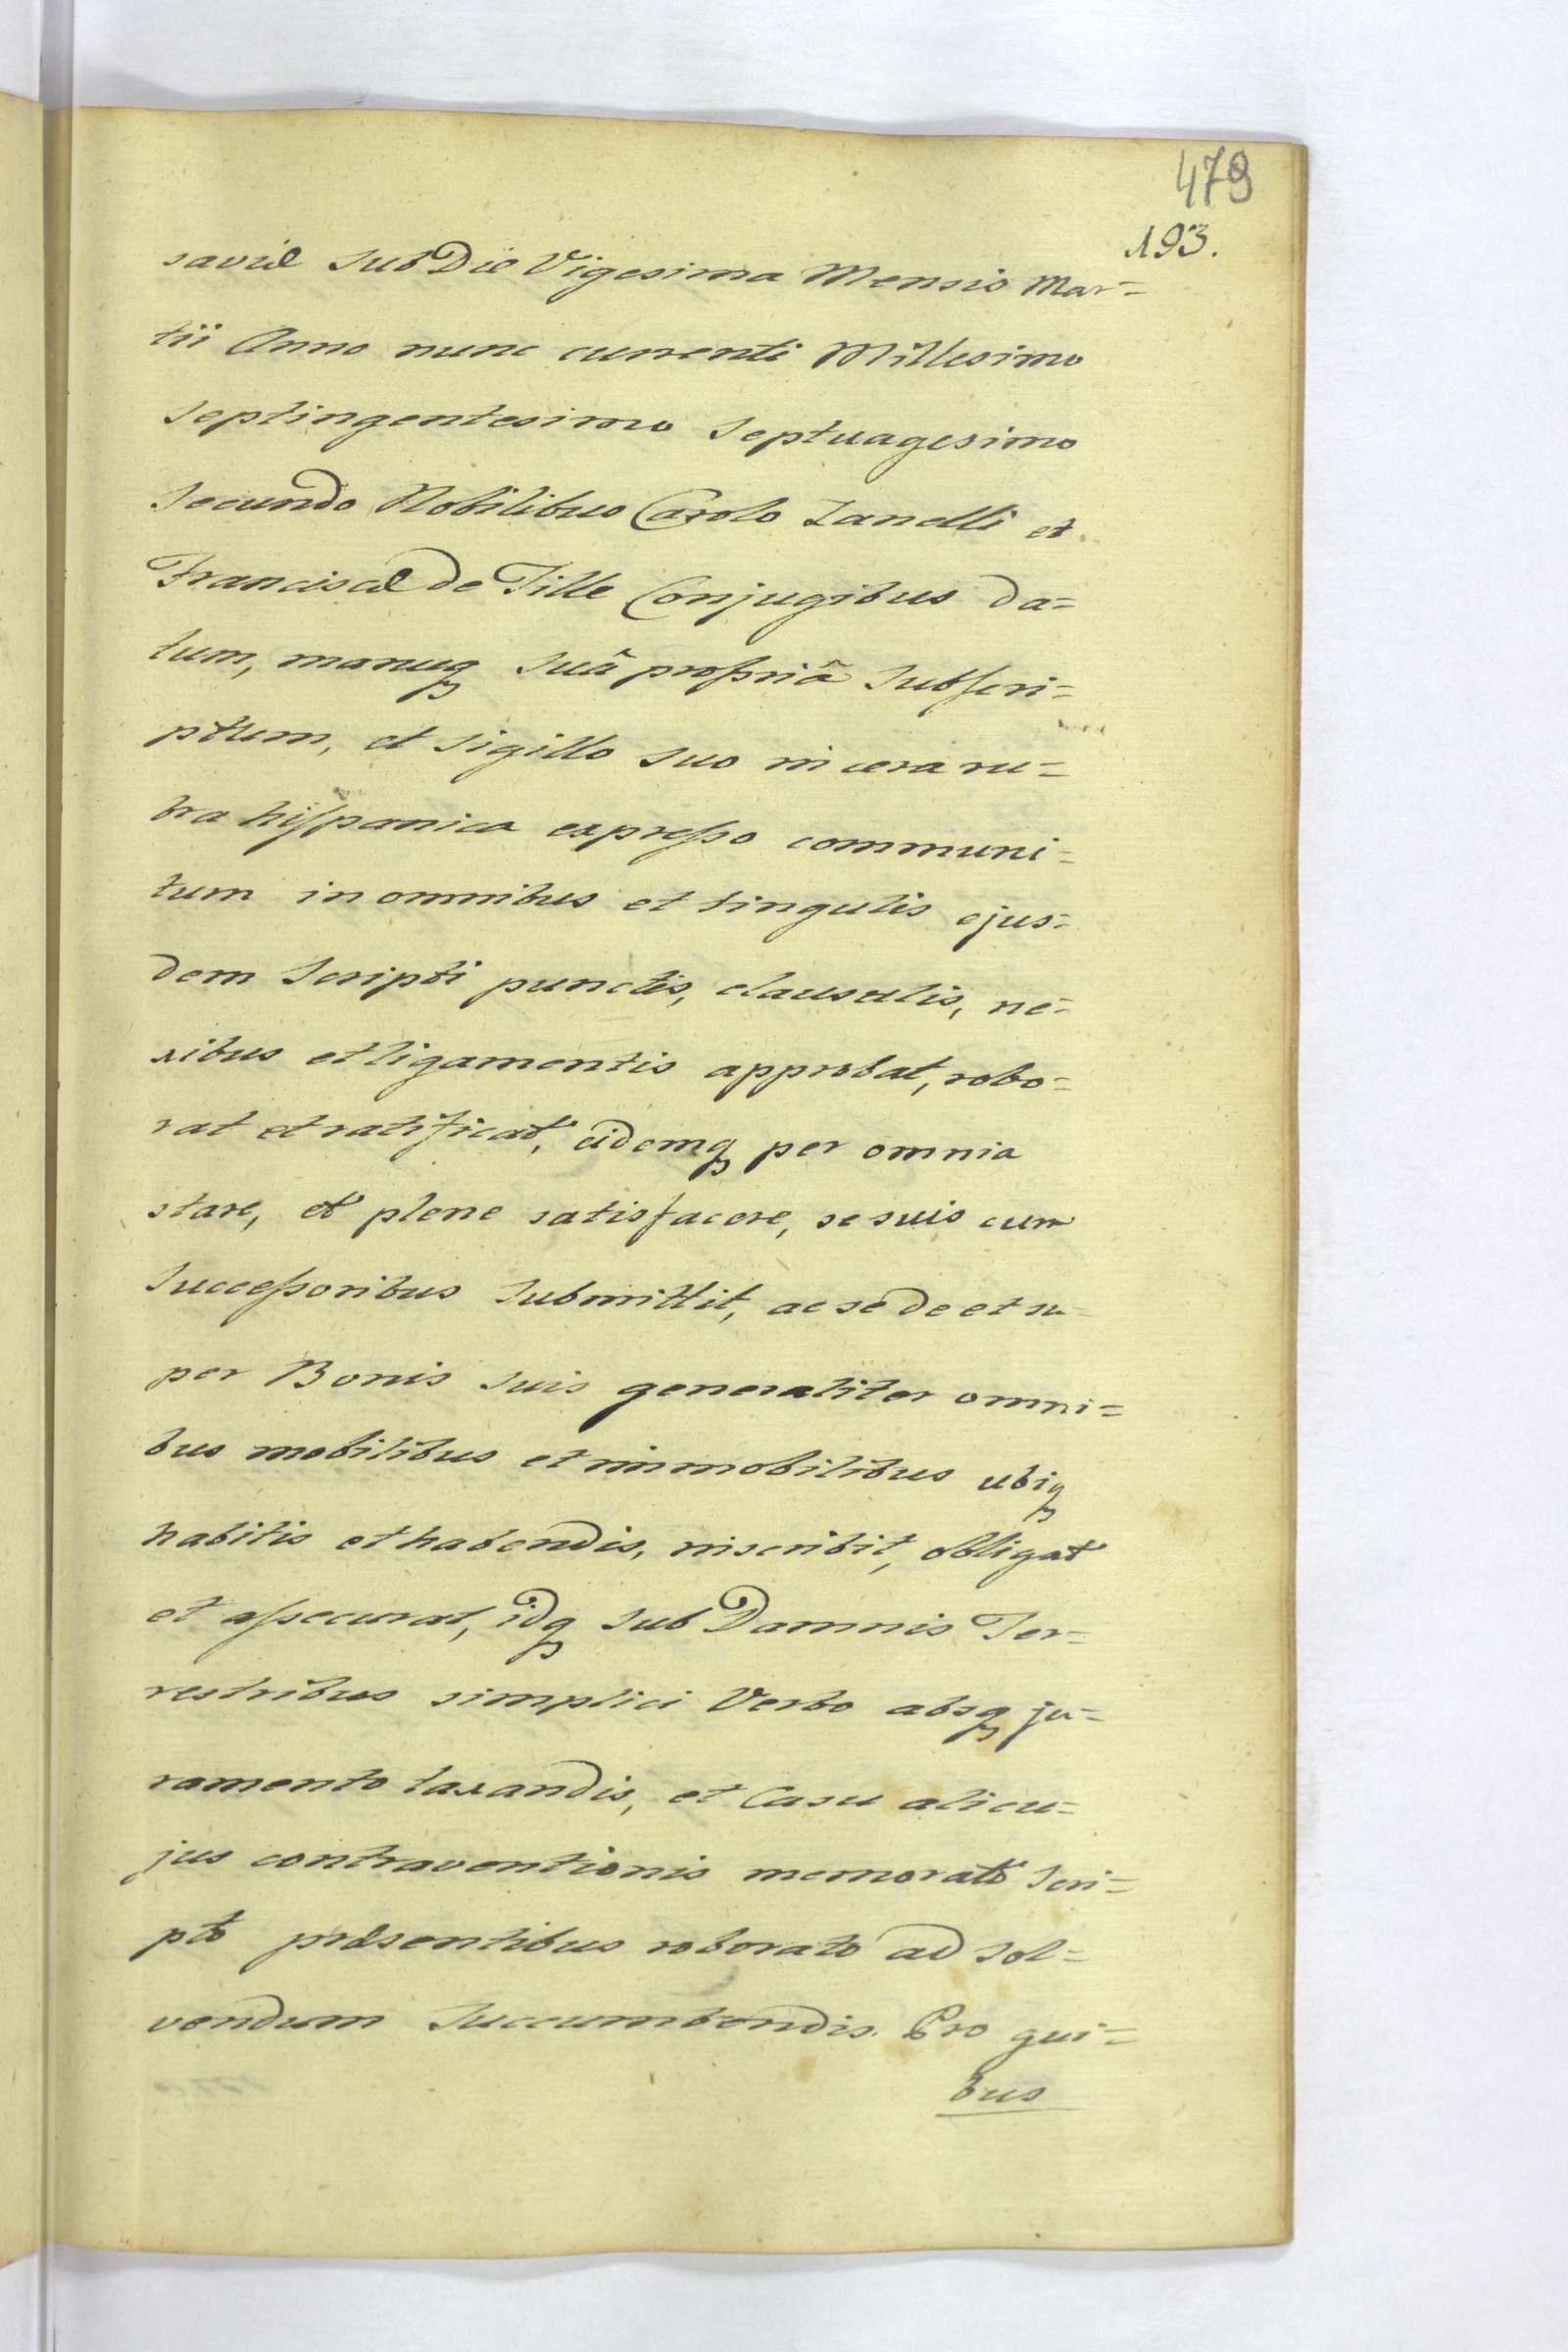 479
193.
saviæ sub Die Vigesima Mensis Mar=
tii Anno nunc currenti Millesimo
septingentesimo septuagesimo
secundo Nobilibus Carolo Zanelli et
Franciscæ de Tille Conjugibus da=
tum, manuq suâ propriâ subscri=
ptum, et sigillo suo in cera ru=
bra hispanica expresso communi=
tum in omnibus et singulis ejus=
dem scripti punctis, clausulis, ne=
xibus et ligamentis approbat, robo=
rat et ratificat, eidemq per omnia
stare, et plene satisfacere, se suis cum
successoribus submittit, ac se de et su=
per Bonis suis generaliter omni=
bus mobilibus et immobilibus ubiq
habitis et habendis, inscribit, obligat
et assecurat, idq sub Damnis Ter=
restribus simplici Verbo absq ju=
ramento taxandis, et Casu alicu=
jus contraventionis memorato scri=
pto præsentibus roborato ad sol=
vendum succumbendis. Pro qui=
bus